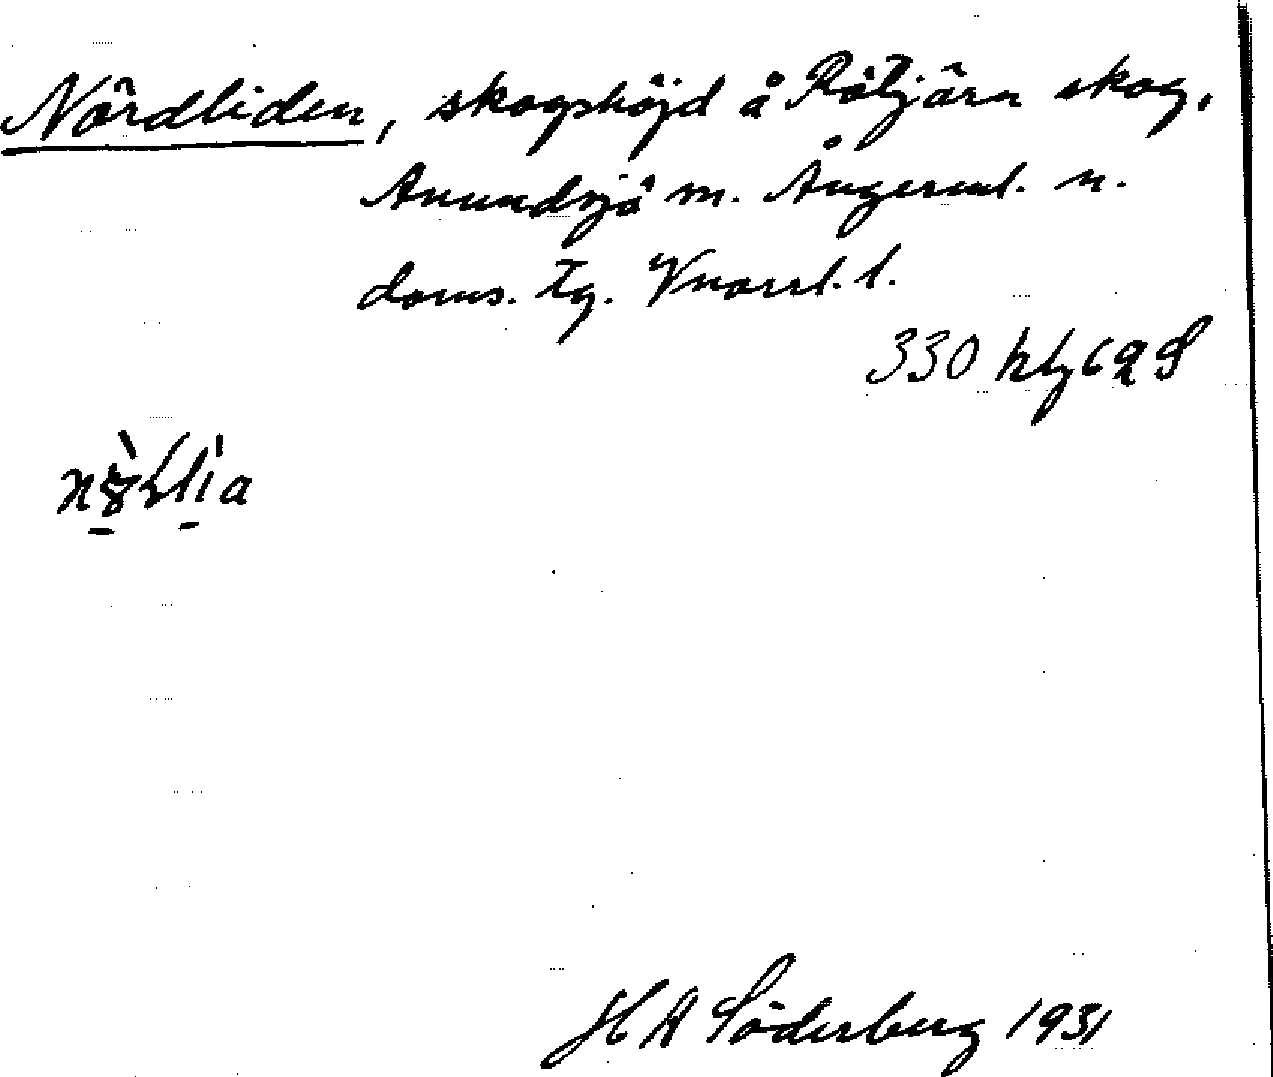 Nördliden, skogshöjd å Rötjärn skog,
Anundsjö sn. Ångerml. n.
doms. tg. Vnorrl. l.
330 htg 62 S
H A Söderberg 1931